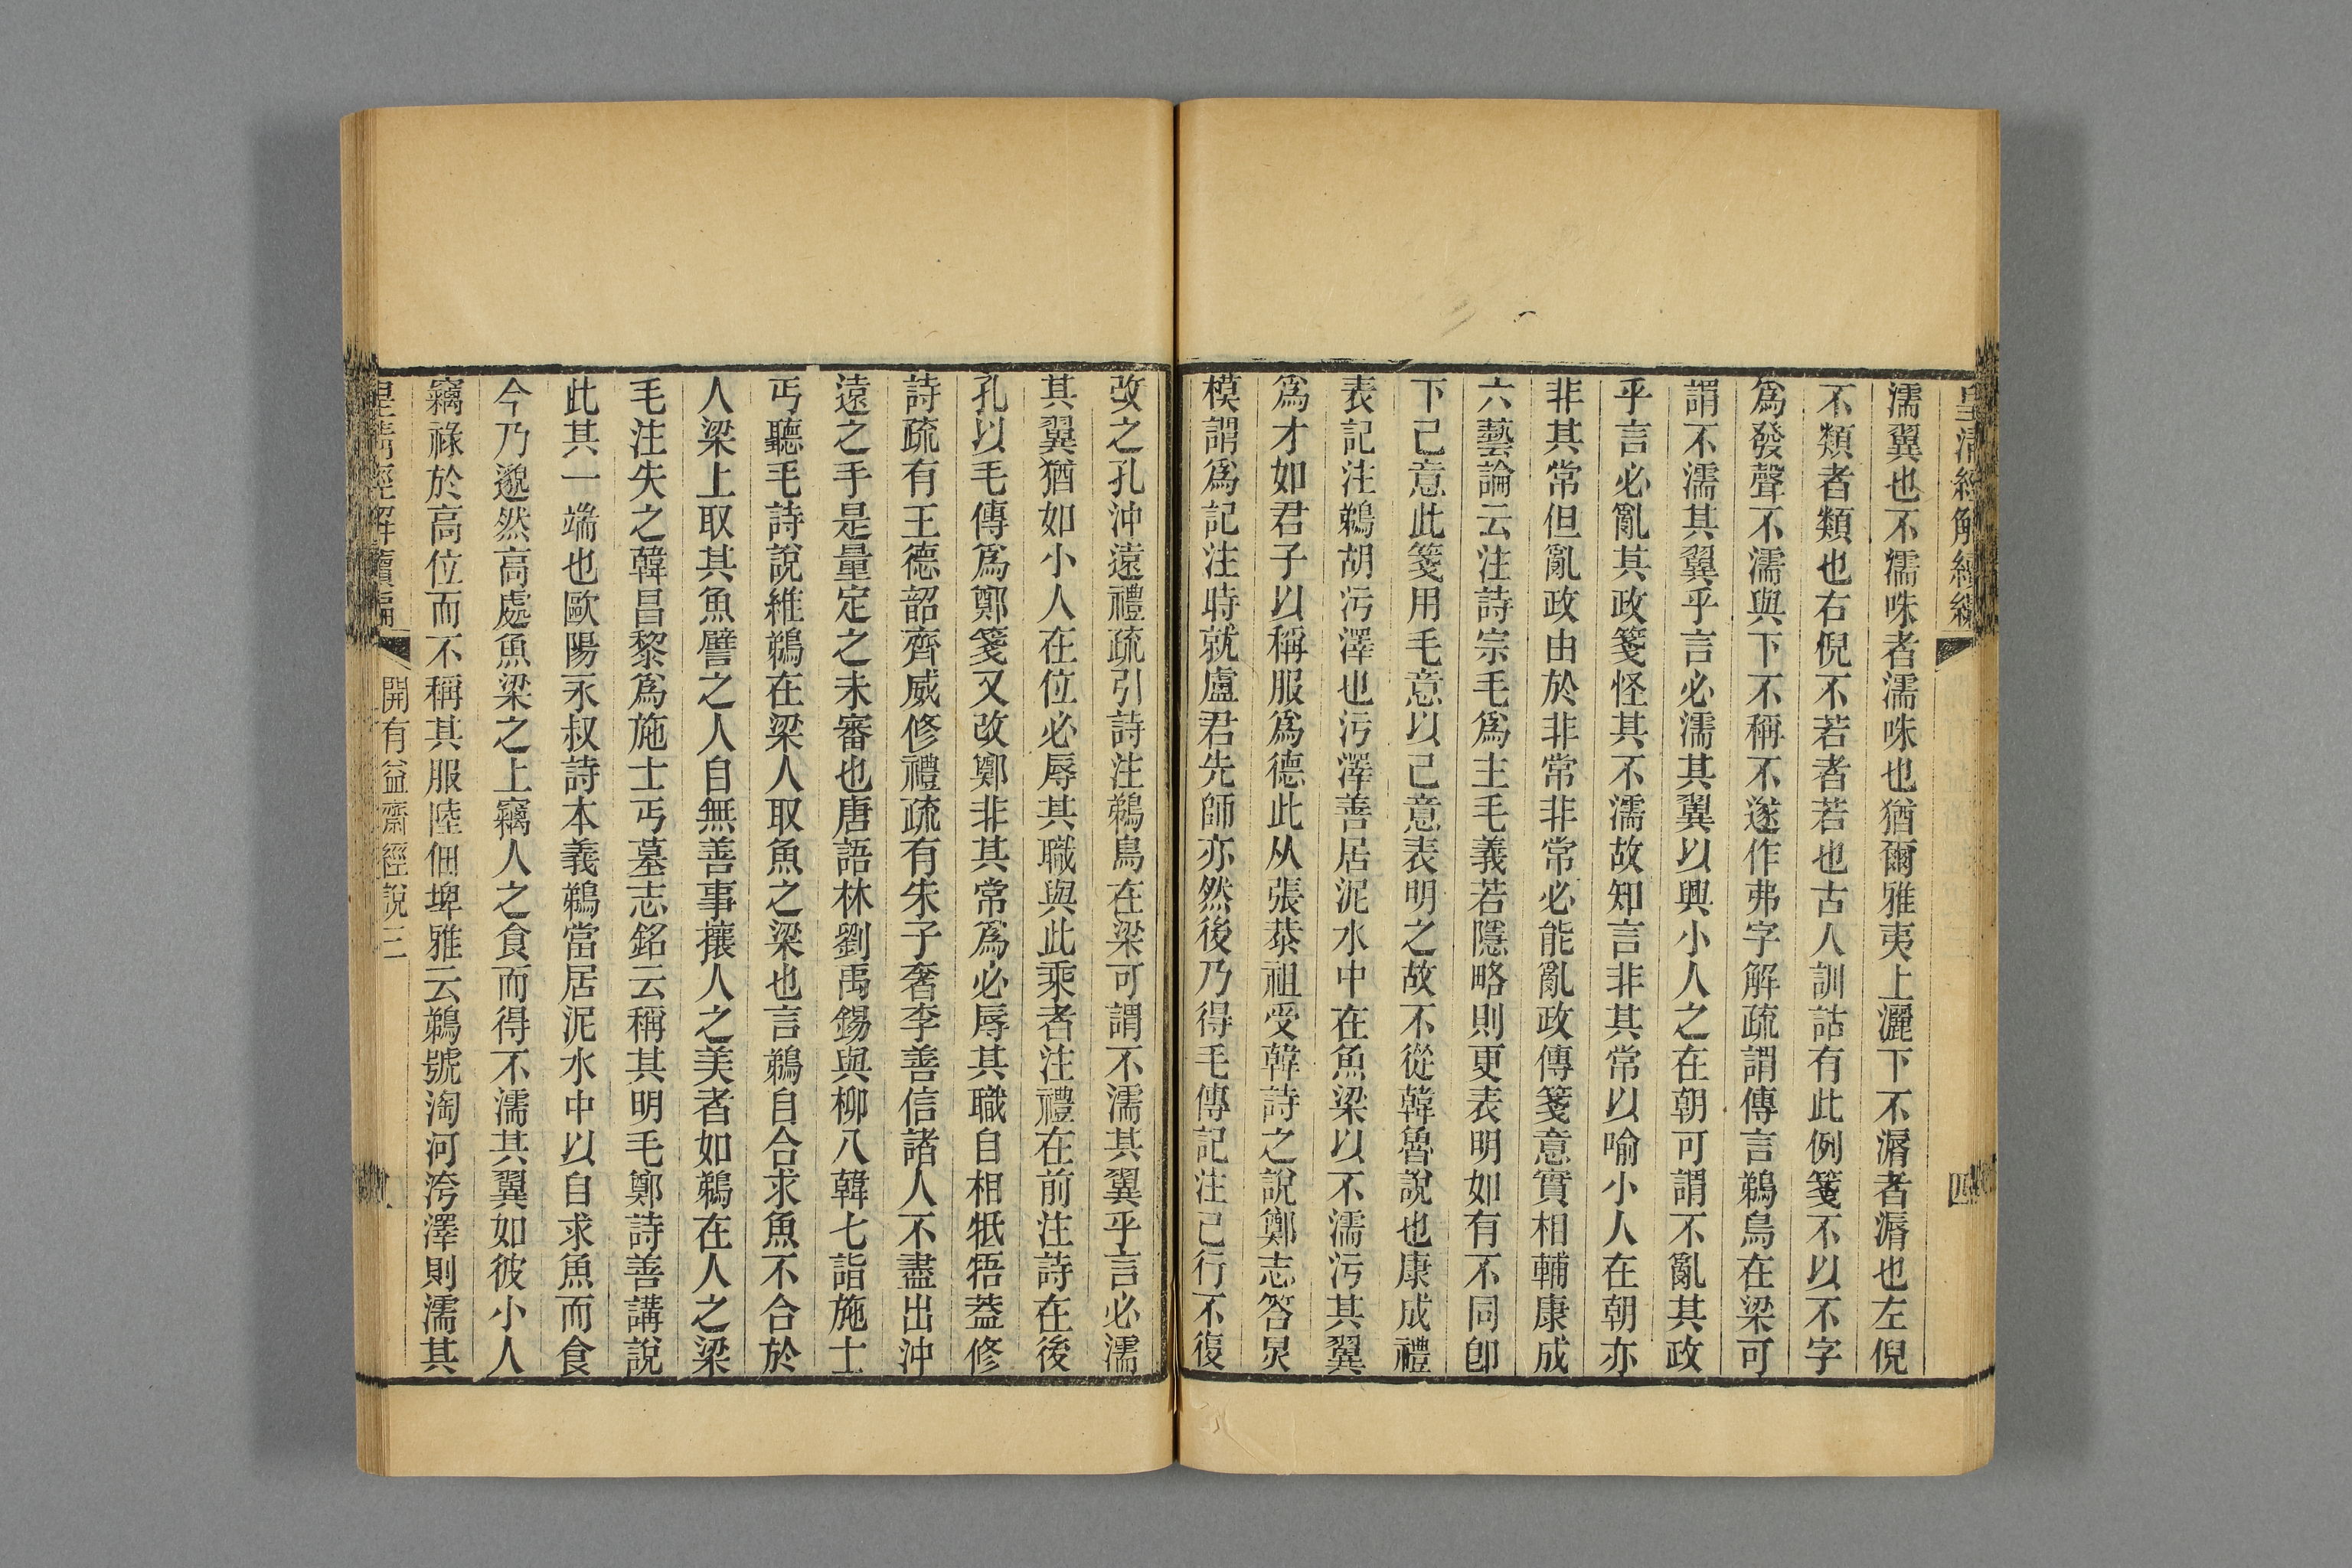 皇清經解續編
四
濡翼也不濡咮者濡咮也猶爾雅夷上灑下不漘者漘也左倪
不類者類也右倪不若者若也古人訓詁有此例箋不以不字
爲發聲不濡與下不稱不遂作弗字解疏謂傳言鵜鳥在梁可
謂不濡其翼乎言必濡其翼以興小人之在朝可謂不亂其政
乎言必亂其政箋怪其不濡故知言非其常以喻小人在朝亦
非其常但亂政由於非常非常必能亂政傳箋意實相輔康成
六藝論云注詩宗毛爲主毛義若隱略則更表明如有不同卽
下己意此箋用毛意以己意表明之故不從韓魯說也康成禮
表記注鵜胡污澤也污澤善居泥水中在魚梁以不濡污其翼
爲才如君子以稱服爲德此从張恭祖受韓詩之說鄭志答炅
模謂爲記注時就盧君先師亦然後乃得毛傳記注已行不復
改之孔沖遠禮疏引詩注鵜鳥在梁可謂不濡其翼乎言必濡
其翼猶如小人在位必辱其職與此乘者注禮在前注詩在後
孔以毛傳爲鄭箋又改鄭非其常爲必辱其職自相牴牾蓋修
詩疏有王德韶齊威修禮疏有朱子奢李善信諸人不盡出沖
遠之手是量定之未審也唐語林劉禹錫與柳八韓七詣施士
丐聽毛詩說維鵜在梁人取魚之梁也言鵜自合求魚不合於
人梁上取其魚譬之人自無善事攘人之美者如鵜在人之梁
毛注失之韓昌黎爲施士丐墓志銘云稱其明毛鄭詩善講說
此其一端也歐陽永叔詩本義鵜當居泥水中以自求魚而食
今乃邈然高處魚梁之上竊人之食而得不濡其翼如彼小人
竊祿於高位而不稱其服陸佃埤雅云鵜號淘河洿澤則濡其
皇清經解續編
開有益齋經說三